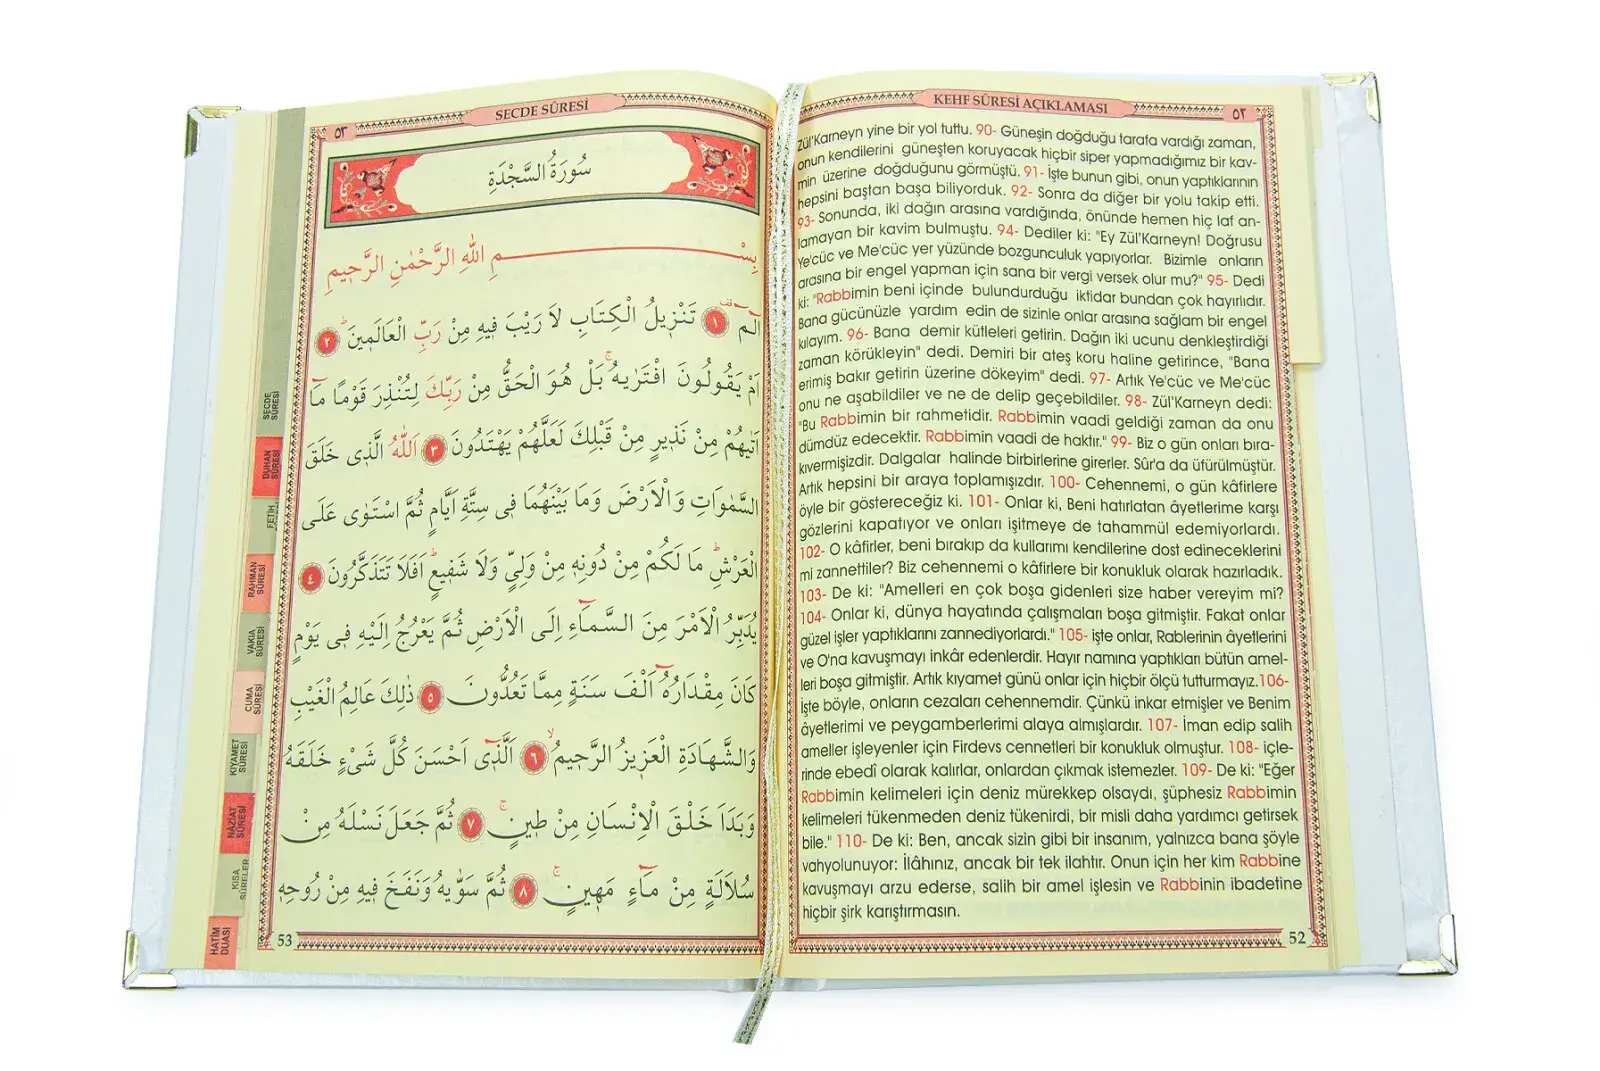 KEHF SÛRESİ AÇIKLAMASI
٥٢
Zül'Karneyn yine bir yol tuttu. 90- Güneşin doğduğu tarafa vardığı zaman,
onun kendilerini güneşten koruyacak hiçbir siper yapmadığımız bir kav-
min üzerine doğduğunu görmüştü. 91- İşte bunun gibi, onun yaptıklarının
hepsini baştan başa biliyorduk. 92- Sonra da diğer bir yolu takip etti.
93- Sonunda, iki dağın arasına vardığında, önünde hemen hiç laf an-
lamayan bir kavim bulmuştu. 94- Dediler ki: "Ey Zül'Karneyn! Doğrusu
Ye'cüc ve Me'cüc yer yüzünde bozgunculuk yapıyorlar. Bizimle onların
arasına bir engel yapman için sana bir vergi versek olur mu?" 95- Dedi
ki: "Rabbimin beni içinde bulundurduğu iktidar bundan çok hayırlıdır.
Bana gücünüzle yardım edin de sizinle onlar arasına sağlam bir engel
kılayım. 96- Bana demir kütleleri getirin. Dağın iki ucunu denkleştirdiği
zaman körükleyin" dedi. Demiri bir ateş koru haline getirince, "Bana
erimiş bakır getirin üzerine dökeyim" dedi. 97- Artık Ye'cüc ve Me'cüc
onu ne aşabildiler ve ne de delip geçebildiler. 98- Zül'Karneyn dedi:
"Bu Rabbimin bir rahmetidir. Rabbimin vaadi geldiği zaman da onu
dümdüz edecektir. Rabbimin vaadi de haktır." 99- Biz o gün onları bıra-
kıvermişizdir. Dalgalar halinde birbirlerine girerler. Sûr'a da üfürülmüştür.
Artık hepsini bir araya toplamışızdır. 100- Cehennemi, o gün kâfirlere
öyle bir göstereceğiz ki. 101- Onlar ki, Beni hatırlatan âyetlerime karşı
gözlerini kapatıyor ve onları işitmeye de tahammül edemiyorlardı.
102- O kâfirler, beni bırakıp da kullarımı kendilerine dost edineceklerini
mi zannettiler? Biz cehennemi o kâfirlere bir konukluk olarak hazırladık.
103- De ki: "Amelleri en çok boşa gidenleri size haber vereyim mi?
104- Onlar ki, dünya hayatında çalışmaları boşa gitmiştir. Fakat onlar
güzel işler yaptıklarını zannediyorlardı." 105- işte onlar, Rablerinin âyetlerini
ve O'na kavuşmayı inkâr edenlerdir. Hayır namına yaptıkları bütün amel-
leri boşa gitmiştir. Artık kıyamet günü onlar için hiçbir ölçü tutturmayız.106-
İşte böyle, onların cezaları cehennemdir. Çünkü inkar etmişler ve Benim
âyetlerimi ve peygamberlerimi alaya almışlardır. 107- İman edip salih
ameller işleyenler için Firdevs cennetleri bir konukluk olmuştur. 108- içle-
rinde ebedî olarak kalırlar, onlardan çıkmak istemezler. 109- De ki: "Eğer
Rabbimin kelimeleri için deniz mürekkep olsaydı, şüphesiz Rabbimin
kelimeleri tükenmeden deniz tükenirdi, bir misli daha yardımcı getirsek
bile." 110- De ki: Ben, ancak sizin gibi bir insanım, yalnızca bana şöyle
vahyolunuyor: İlâhınız, ancak bir tek ilahtır. Onun için her kim Rabbine
kavuşmayı arzu ederse, salih bir amel işlesin ve Rabbinin ibadetine
hiçbir şirk karıştırmasın.
52
SECDE SÛRESİ
٥٣
سُورَةُ السَّجْدَةِ
بِسْمِ اللّٰهِ الرَّحْمٰنِ الرَّحٖيمِ
الٓمٓ ﴿١﴾ تَنْزٖيلُ الْكِتَابِ لَا رَيْبَ فٖيهِ مِنْ رَبِّ الْعَالَمٖينَ ﴿٢﴾
اَمْ يَقُولُونَ افْتَرٰيهُ بَلْ هُوَ الْحَقُّ مِنْ رَبِّكَ لِتُنْذِرَ قَوْمًا مَٓا
اَتٰيهُمْ مِنْ نَذٖيرٍ مِنْ قَبْلِكَ لَعَلَّهُمْ يَهْتَدُونَ ﴿٣﴾ اَللّٰهُ الَّذٖى خَلَقَ
السَّمٰوَاتِ وَالْاَرْضَ وَمَا بَيْنَهُمَا فٖى سِتَّةِ اَيَّامٍ ثُمَّ اسْتَوٰى عَلَى
الْعَرْشِ مَا لَكُمْ مِنْ دُونِهٖ مِنْ وَلِيٍّ وَلَا شَفٖيعٍ اَفَلَا تَتَذَكَّرُونَ ﴿٤﴾
يُدَبِّرُ الْاَمْرَ مِنَ السَّمَٓاءِ اِلَى الْاَرْضِ ثُمَّ يَعْرُجُ اِلَيْهِ فٖى يَوْمٍ
كَانَ مِقْدَارُهُٓ اَلْفَ سَنَةٍ مِمَّا تَعُدُّونَ ﴿٥﴾ ذٰلِكَ عَالِمُ الْغَيْبِ
وَالشَّهَادَةِ الْعَزٖيزُ الرَّحٖيمُ ﴿٦﴾ اَلَّذٖٓى اَحْسَنَ كُلَّ شَىْءٍ خَلَقَهُ
وَبَدَاَ خَلْقَ الْاِنْسَانِ مِنْ طٖينٍ ﴿٧﴾ ثُمَّ جَعَلَ نَسْلَهُ مِنْ
سُلَالَةٍ مِنْ مَٓاءٍ مَهٖينٍ ﴿٨﴾ ثُمَّ سَوّٰيهُ وَنَفَخَ فٖيهِ مِنْ رُوحِهٖ
53
SECDE
SÛRESİ
DUHAN
SÛRESİ
FETİH
RAHMAN
SÛRESİ
VAKIA
SÛRESİ
CUMA
SÛRESİ
KIYAMET
SÛRESİ
NÂZİAT
SÛRESİ
KISA
SÛRELER
HATİM
DUASI